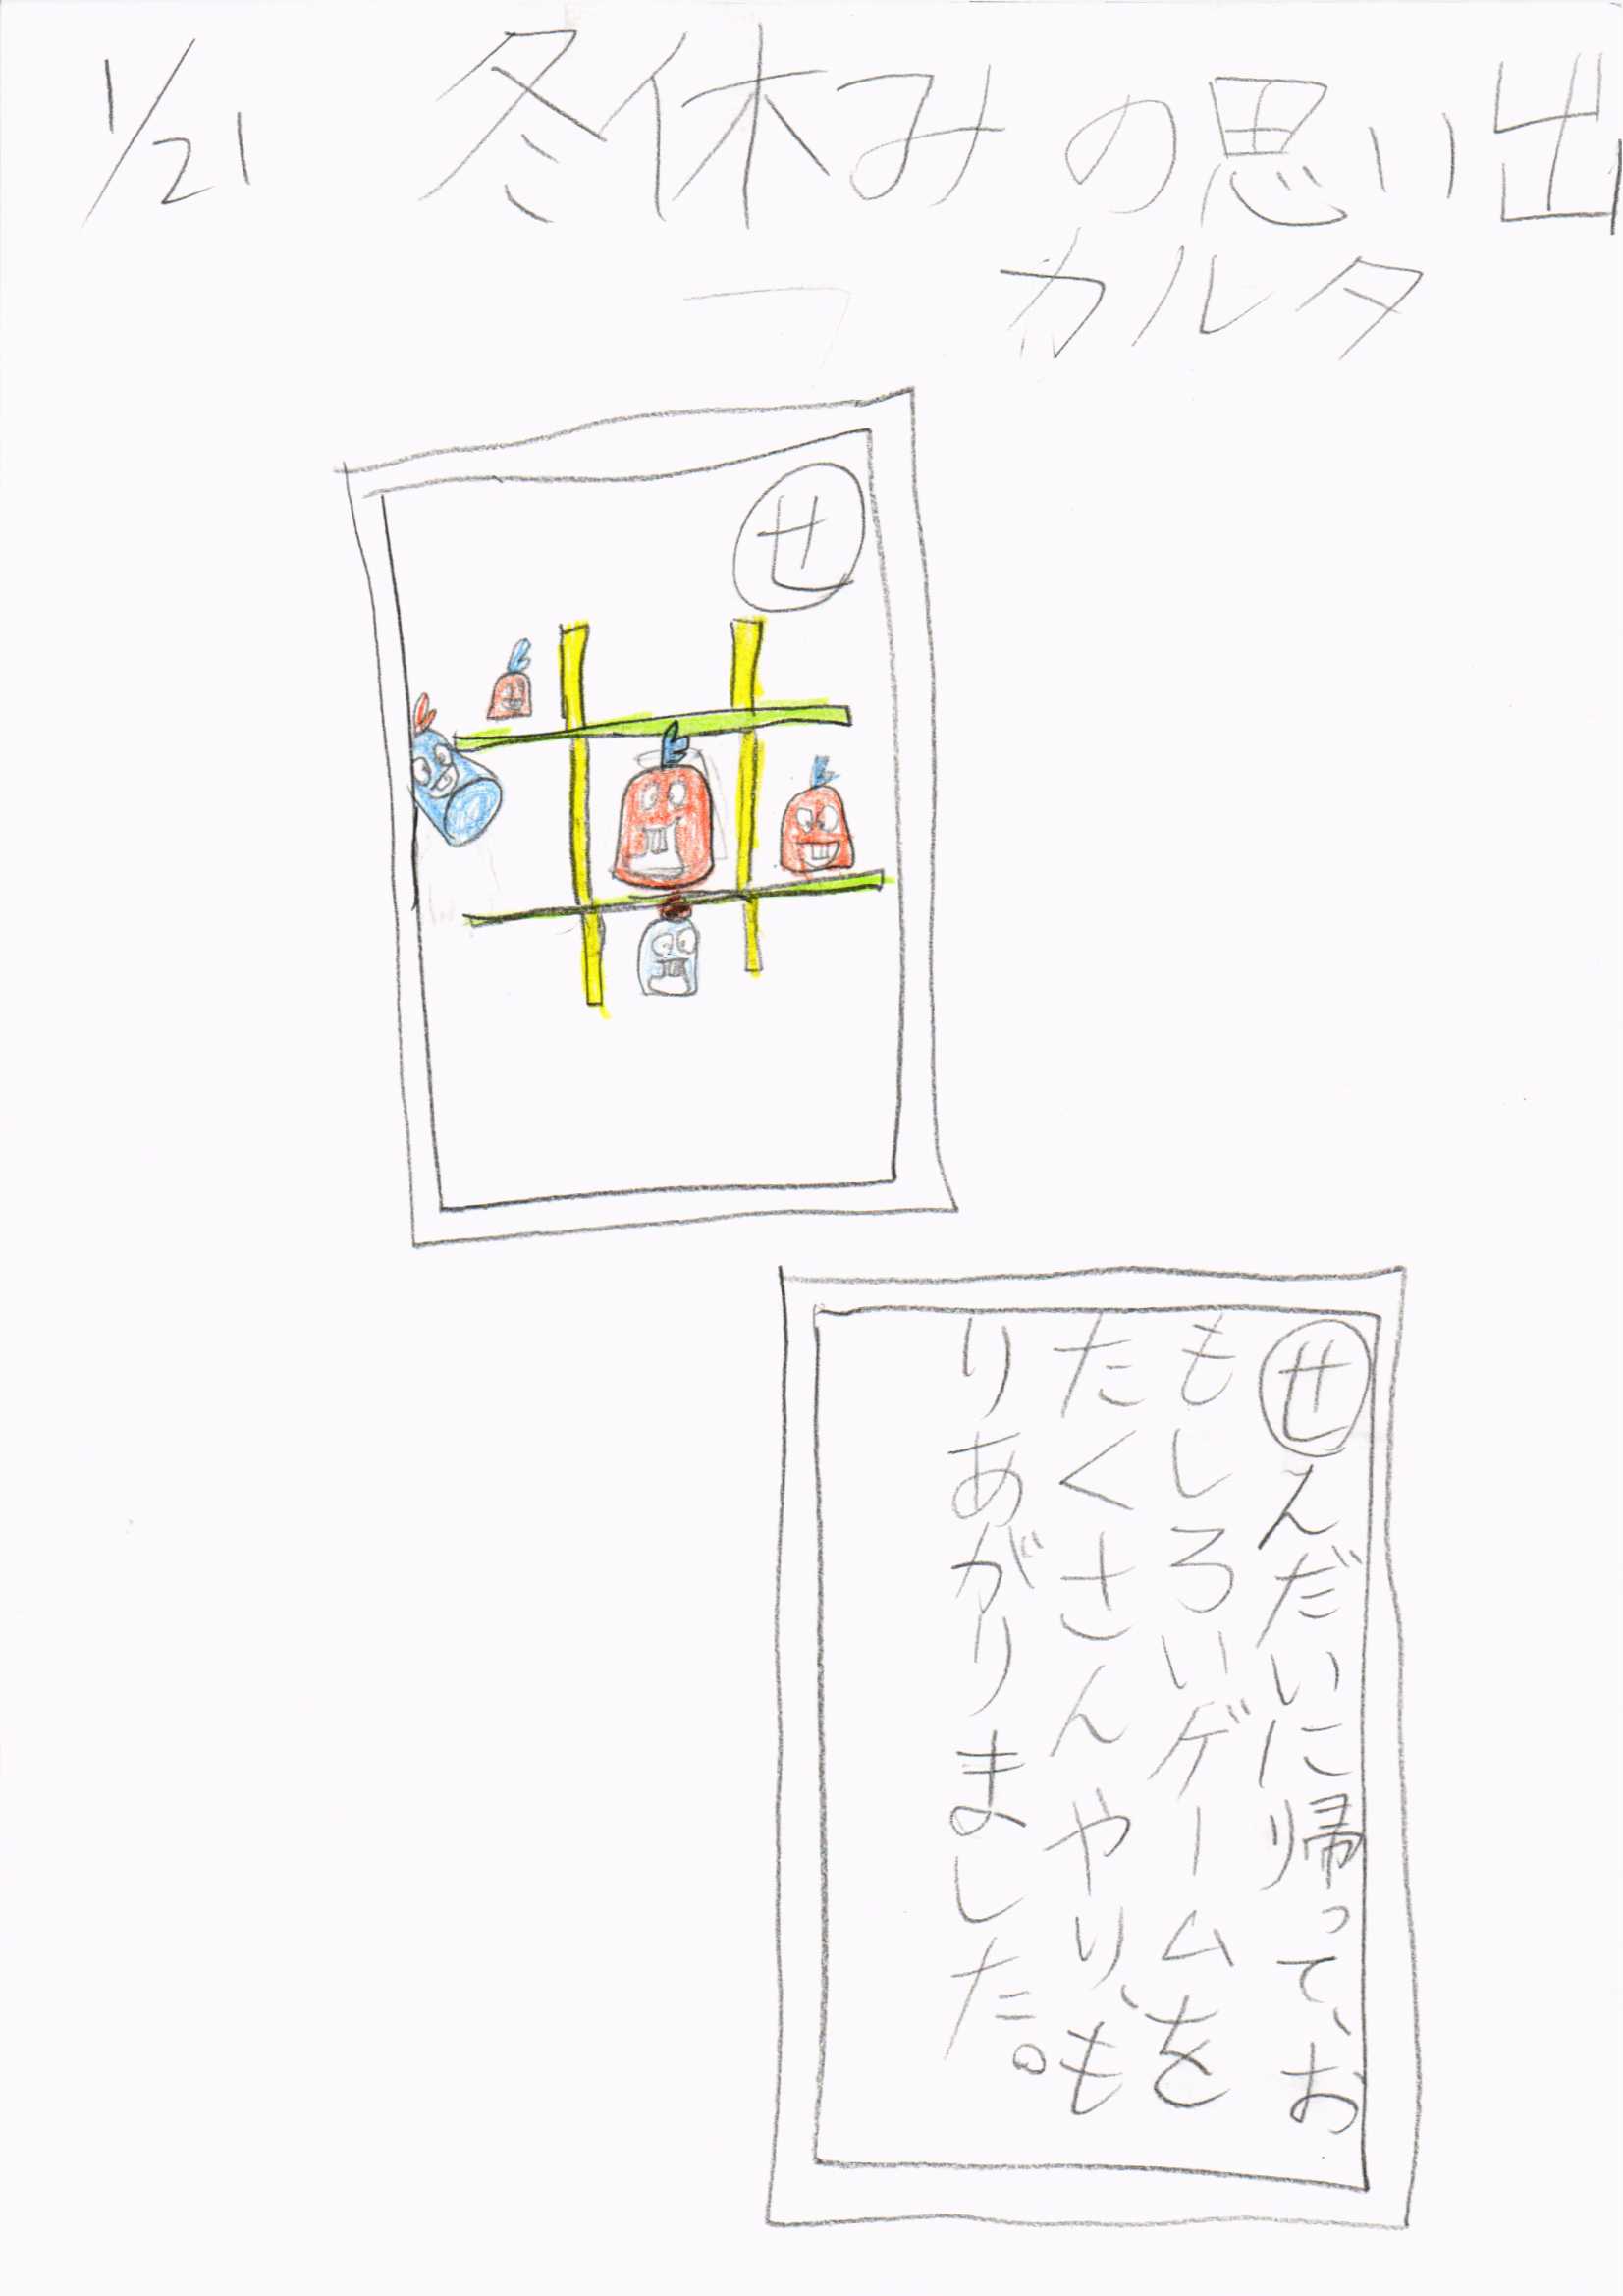 1/21 冬休みの思い出
カルタ
せ
せんだいに帰って、お
もしろいゲームを
たくさんやり、も
りあがりました。